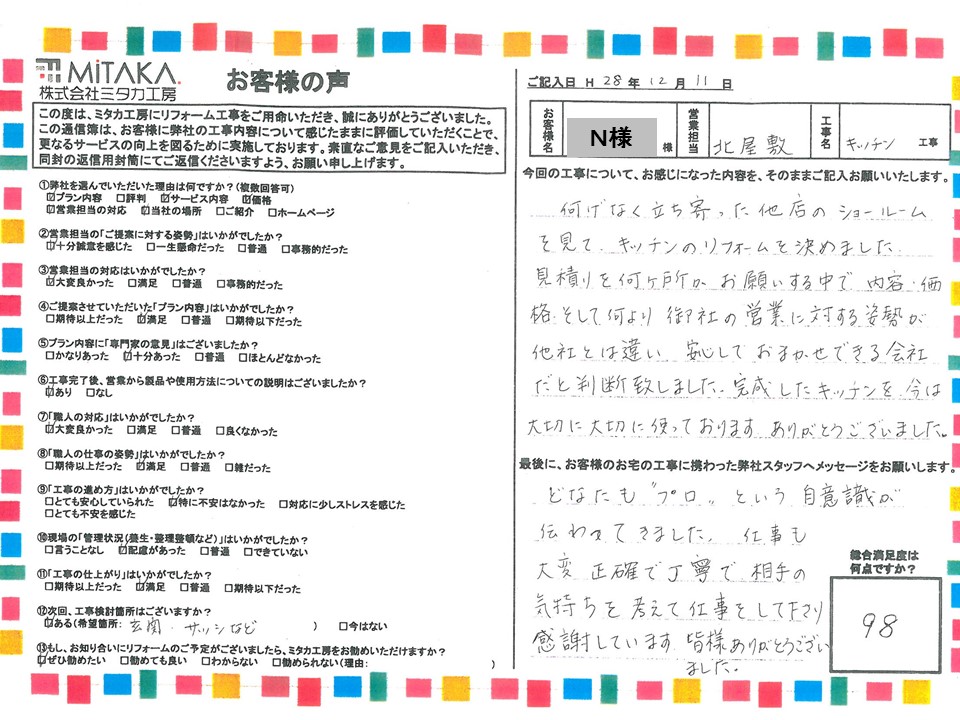 MiTAKA.
株式会社ミタカ工房
お客様の声
この度は、ミタカ工房にリフォーム工事をご用命いただき、誠にありがとうございました。
この通信簿は、お客様に弊社の工事内容について感じたままに評価していただくことで、
更なるサービスの向上を図るために実施しております。素直なご意見をご記入いただき、
同封の返信用封筒にてご返信くださいますよう、お願い申し上げます。
①弊社を選んでいただいた理由は何ですか？(複数回答可)
☑プラン内容 □評判 ☑サービス内容 ☑価格
☑営業担当の対応 ☑当社の場所 □ご紹介 □ホームページ
②営業担当の「ご提案に対する姿勢」はいかがでしたか？
☑十分誠意を感じた □一生懸命だった □普通 □事務的だった
③営業担当の対応はいかがでしたか？
☑大変良かった □満足 □普通 □事務的だった
④ご提案させていただいた「プラン内容」はいかがでしたか？
□期待以上だった ☑満足 □普通 □期待以下だった
⑤プラン内容に「専門家の意見」はございましたか？
□かなりあった ☑十分あった □普通 □ほとんどなかった
⑥工事完了後、営業から製品や使用方法についての説明はございましたか？
☑あり □なし
⑦「職人の対応」はいかがでしたか？
☑大変良かった □満足 □普通 □良くなかった
⑧「職人の仕事の姿勢」はいかがでしたか？
□期待以上だった ☑満足 □普通 □雑だった
⑨「工事の進め方」はいかがでしたか？
□とても安心していられた ☑特に不安はなかった □対応に少しストレスを感じた
□とても不安を感じた
⑩現場の「管理状況(養生・整理整頓など)」はいかがでしたか？
□言うことなし ☑配慮があった □普通 □できていない
⑪「工事の仕上がり」はいかがでしたか？
□期待以上だった ☑満足 □普通 □期待以下だった
⑫次回、工事検討箇所はございますか？
☑ある(希望箇所: 玄関・サッシなど ) □今はない
⑬もし、お知り合いにリフォームのご予定がございましたら、ミタカ工房をお勧めいただけますか？
☑ぜひ勧めたい □勧めても良い □わからない □勧められない(理由: )
ご記入日 H 28 年 12 月 11 日
お客様名 N様 様 営業担当 北屋敷 工事名 キッチン 工事
今回の工事について、お感じになった内容を、そのままご記入お願いいたします。
何げなく立ち寄った他店のショールーム
を見て、キッチンのリフォームを決めました。
見積りを何ヶ所か、お願いする中で 内容・価
格・そして何より御社の営業に対する姿勢が
他社とは違い、安心しておまかせできる会社
だと判断致しました。完成したキッチンを、今は
大切に大切に使っております。ありがとうございました。
最後に、お客様のお宅の工事に携わった弊社スタッフへメッセージをお願いします。
どなたも"プロ"という自意識が
伝わってきました。 仕事も
大変 正確で丁寧で 相手の
気持ちを考えて仕事をして下さり
感謝しています。皆様ありがとうござい
ました。
総合満足度は
何点ですか？
98